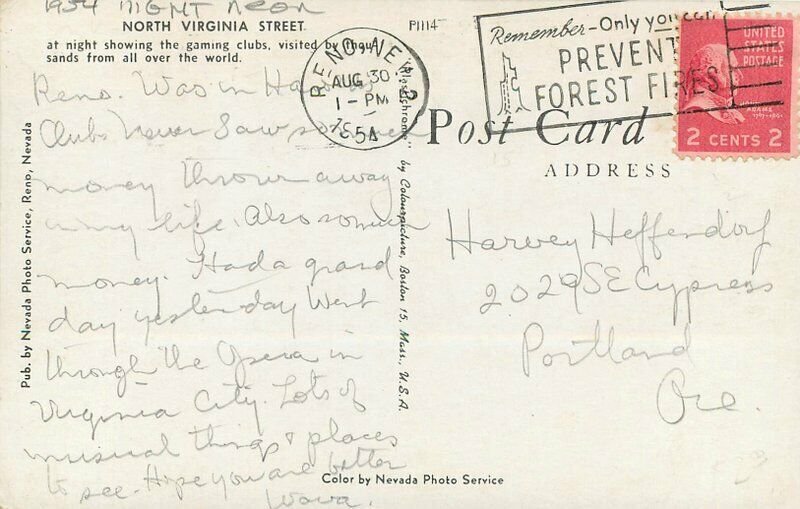 1954 NIGHT NEON
NORTH VIRGINIA STREET
at night showing the gaming clubs, visited by thou-
sands from all over the world.
P1114
RENO, NEV.
AUG 30
1 - PM
1954
2
Remember - Only you can
PREVENT
FOREST FIRES
UNITED
STATES
POSTAGE
2 CENTS 2
Post Card
ADDRESS
Pub. by Nevada Photo Service, Reno, Nevada
"Plastichrome" by Colourpicture, Boston 15, Mass., U.S.A.
Reno. Was in
Clubs Never Saw so
money thrown away
in my life. Also so much
money. Had a grand
day yesterday Went
through the Opera in
Virginia City. Lots of
unusual things & places
to see. Hope you are better
Harvey Heffendorf
2029 SE Cypress
Portland
Ore.
Color by Nevada Photo Service